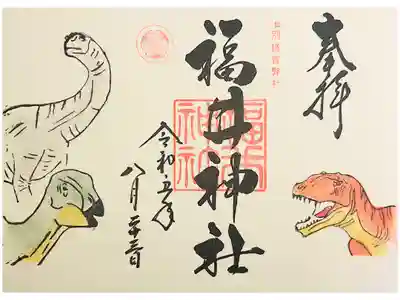 奉拝
旧別格官幣社
福井神社
福井神社
令和五年
八月